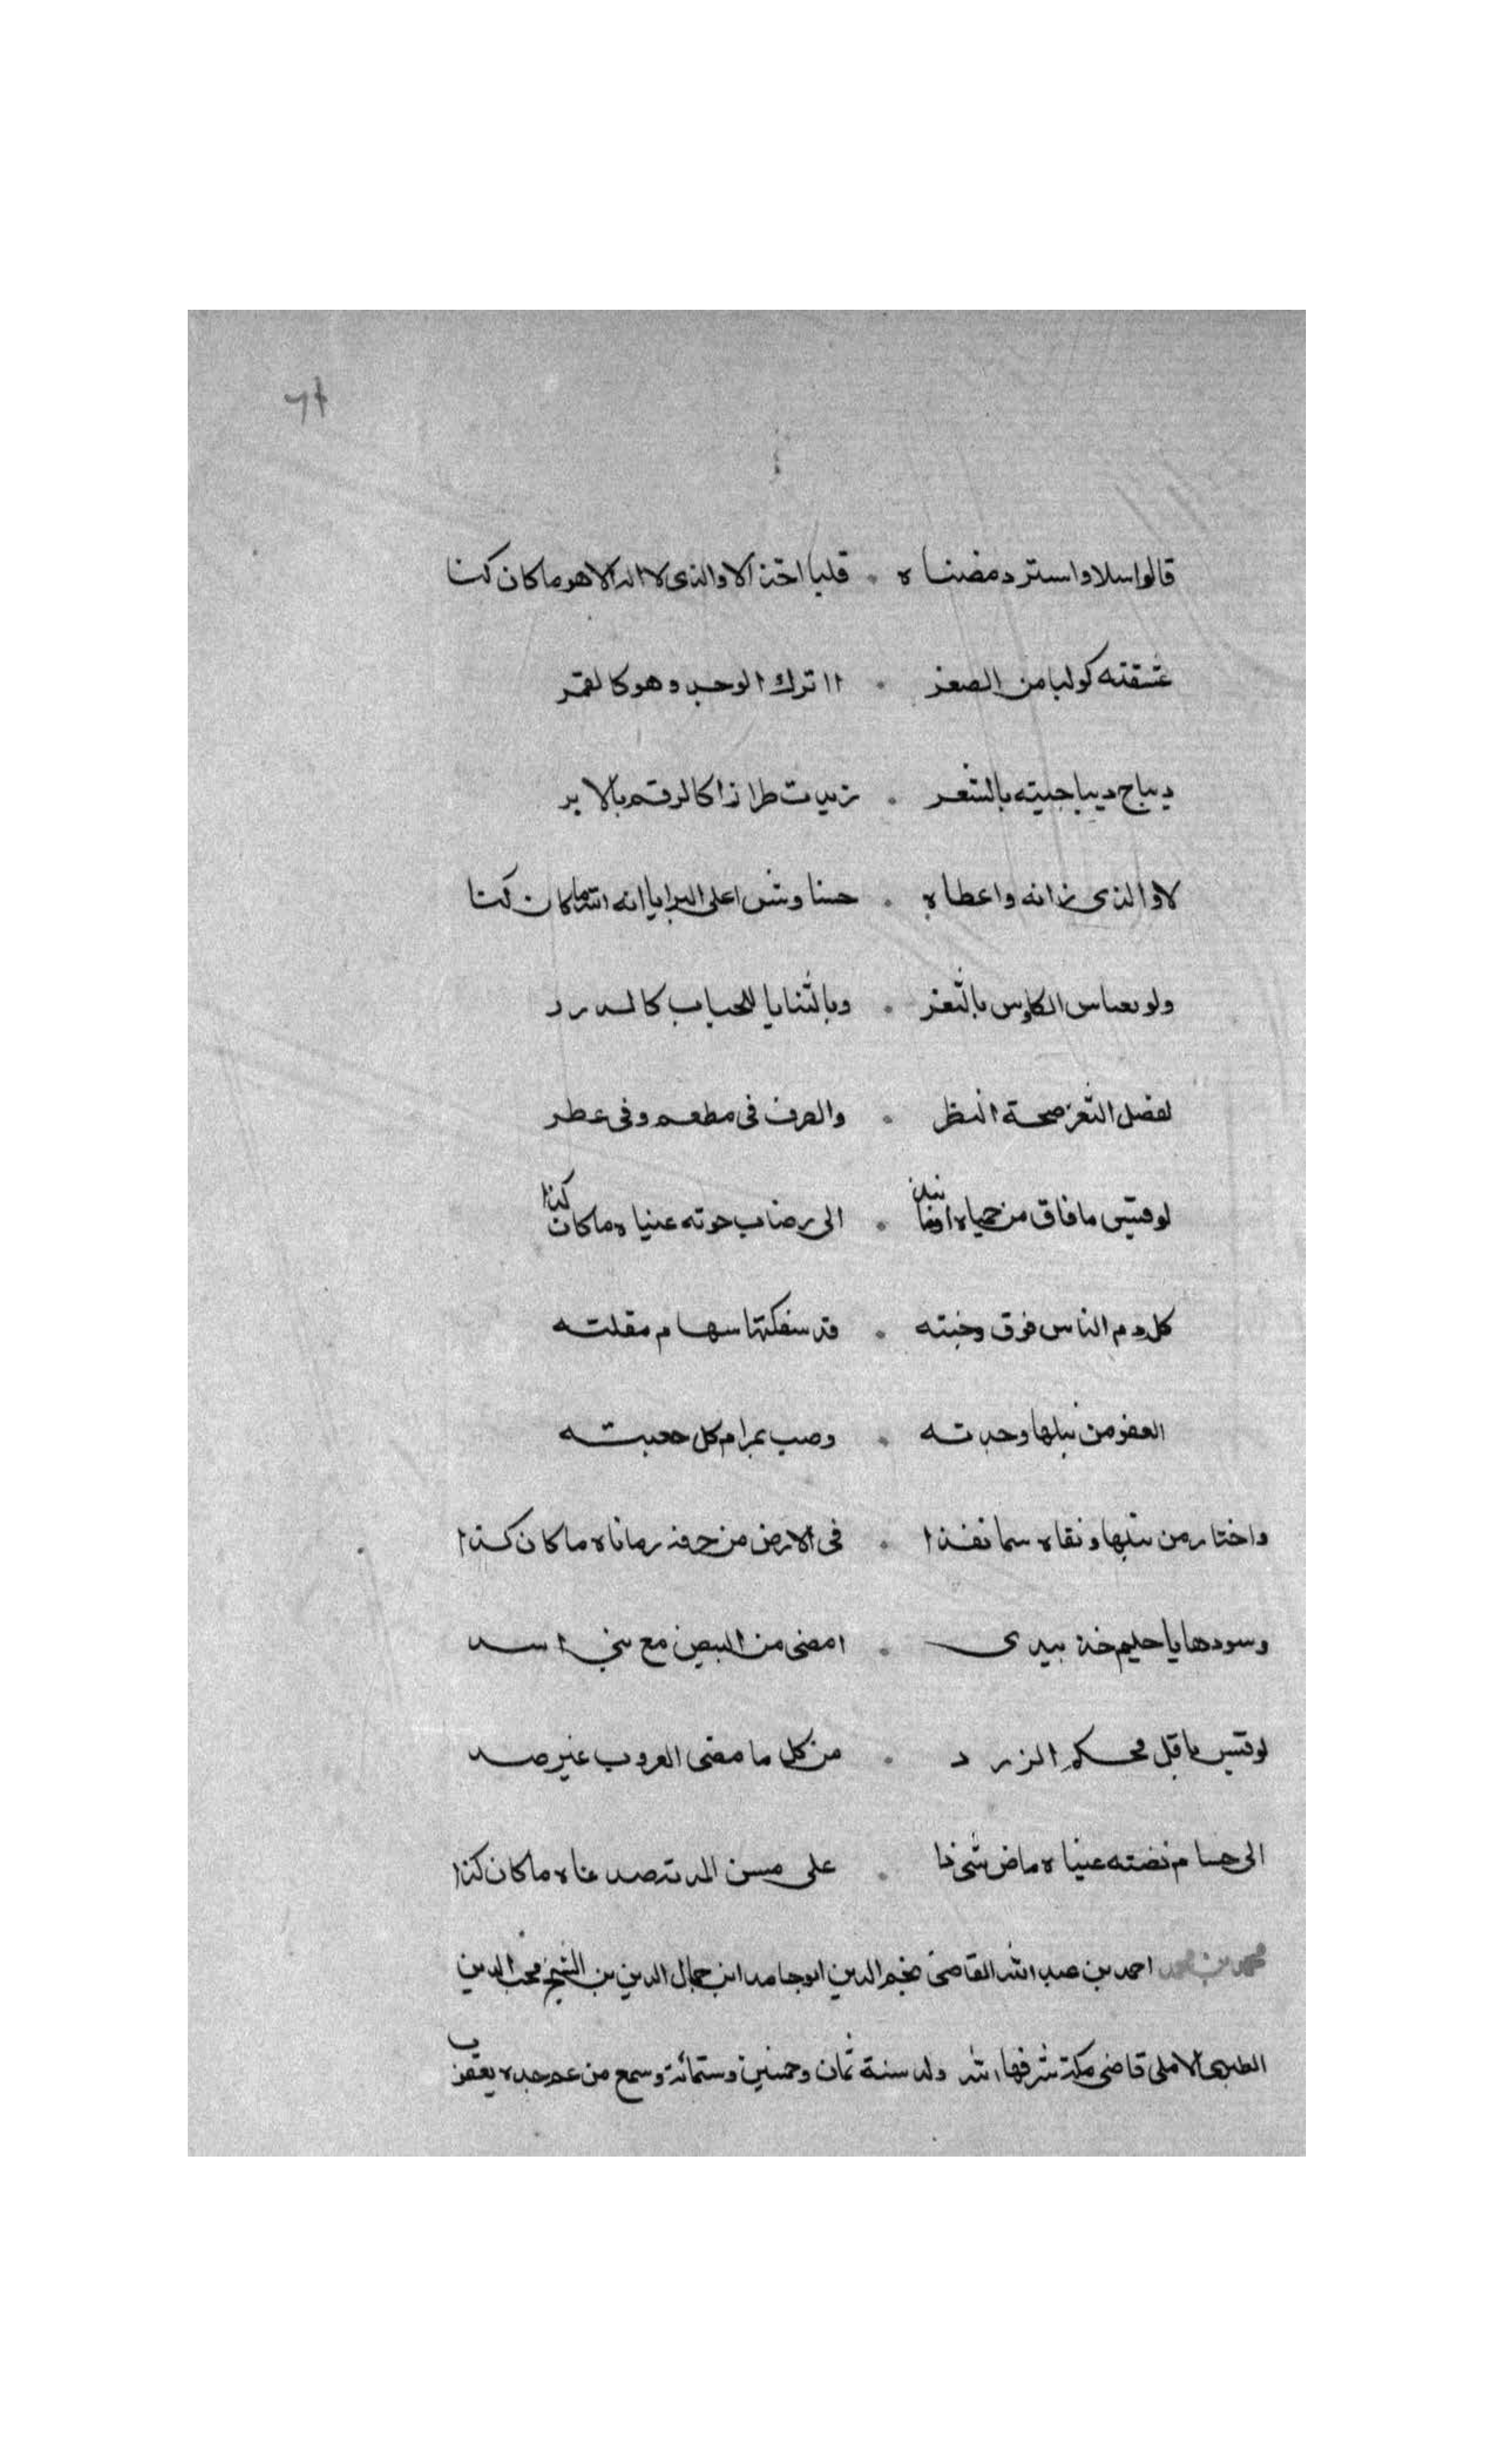 ٦٨
قالوا سلا واسترد مضناه . قلبا اخذ الا والذي لا اله الا هو ما كان كذا
عشقته كوكبا من الصغر . اترك الوجد وهو كالقمر
ديباج ديباجيته بالشعر . زيدت طرازا كالرقم بالابر
لا والذي زانه واعطاه . حسنا وشى اعلى البرايا انه الله ما كان كذا
ولو يقاس الكاوس بالثغر . وبالثنايا الحباب كالدرر
لفضل الثغر صحة النظر . والعرف في مطعم وفي عطر
لو قيس ما فاق من حمياه . الى رضاب حوته عيناه ما كان كذا
كل دم الناس فوق وجنته . قد سفكتها سهام مقلته
العضو من نبلها وحدته . وصب بمرام كل جعبته
واختار من نبلها ونقاه سما نفذا . في الارض من رماناه ما كان كذا
وسودها يا حليم خذ بيدي . امضى من البيض مع بني اسد
لو قيس ما قل محكم الزرد . من كل ماضي الغروب غير صد
الى حسام نضته عيناه ماض شحذا . على مسن المد ما كان كذا
محمد بن محمد احمد بن عبد الله القاضي نجم الدين ابو حامد ابن جمال الدين بن الشيخ محب الدين
الطبري الاملي قاضي مكة شرفها الله ولد سنة ثمان وخمسين وستمائة وسمع من عم جده يعقوب